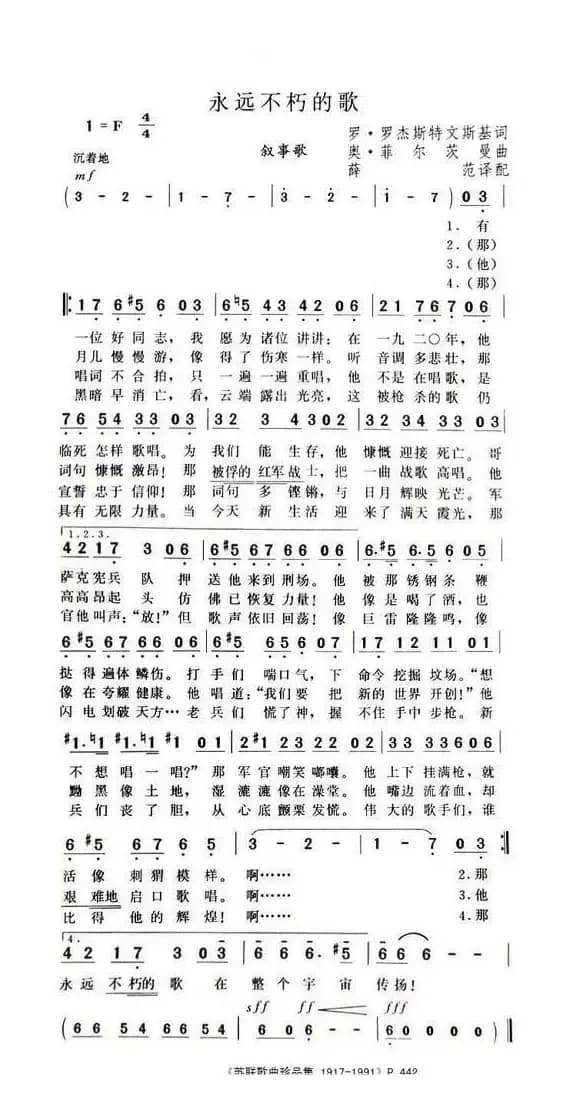 永远不朽的歌
1=F 4/4
叙事歌
罗·罗杰斯特文斯基词
奥·菲尔茨曼曲
薛范译配
沉着地
mf
(3 - 2 - | 1 - 7 - | 3 - 2 - | 1 - 7) 0 3 |
1.有
2.(那)
3.(他)
4.(那)
‖: 1 7 6 #5 6 0 3 | 6 ♮5 4 3 4 2 0 6 | 2 1 7 6 7 0 6 |
一位好同志，我愿为诸位讲讲：在一九二〇年，他
月儿慢慢游，像得了伤寒一样。听音调多悲壮，那
唱词不合拍，只一遍一遍重唱，他不是在唱歌，是
黑暗早消亡，看，云端露出光亮，这被枪杀的歌仍
7 6 5 4 3 3 0 3 | 1 2 3 2 3 3 0 3 | 3 2 3 4 3 0 2 |
临死怎样歌唱。为我们能生存，他慷慨迎接死亡。哥
词句慷慨激昂！那被俘的红军战士，把一曲战歌高唱。他
宣誓忠于信仰！那词句多铿锵，与日月辉映光芒。军
具有无限力量。当今天新生活迎来了满天霞光，那
1.2.3.
4 2 1 7 3 0 6 | 6 #5 6 7 6 6 0 6 | 6. #5 6. 5 6 0 5 |
萨克宪兵队押送他来到刑场。他被那锈钢条鞭
高高昂起头仿佛已恢复力量！他像是喝了酒，也
官他叫声：“放！”但歌声依旧回荡！像巨雷隆隆鸣，像
挞得遍体鳞伤。打手们喘口气，下命令挖掘坟场。“想
像在夸耀健康。他唱道：“我们要把新的世界开创！”他
闪电划破天方…老兵们慌了神，握不住手中步枪。新
#1. ♮1 #1. ♮1 #1 0 1 | 2 #1 2 3 2 2 0 2 | 3 2 3 3 3 0 6 |
不想唱一唱？”那军官嘲笑啷囔。他上下挂满枪，就
黝黑像土地，湿漉漉像在澡堂。他嘴边流着血，却
兵们丧了胆，从心底颤栗发慌。伟大的歌手们，谁
6 #5 6 7 6 5 | 3 - 2 - | 1 - 7 - | 0 3 :‖
活像刺猬模样。啊…… 2.那
艰难地启口歌唱。啊…… 3.他
比得他的辉煌！啊…… 4.那
4.
4 2 1 7 3 0 3 | 6 6 6. #5 | 6 6 - - |
永远不朽的歌在整个宇宙传扬！
sff ff fff
(6 6 5 4 6 6 5 4 | 6 0 6 6 | 6 0 0 0) ‖
《苏联歌曲珍品集 1917-1991》P 442